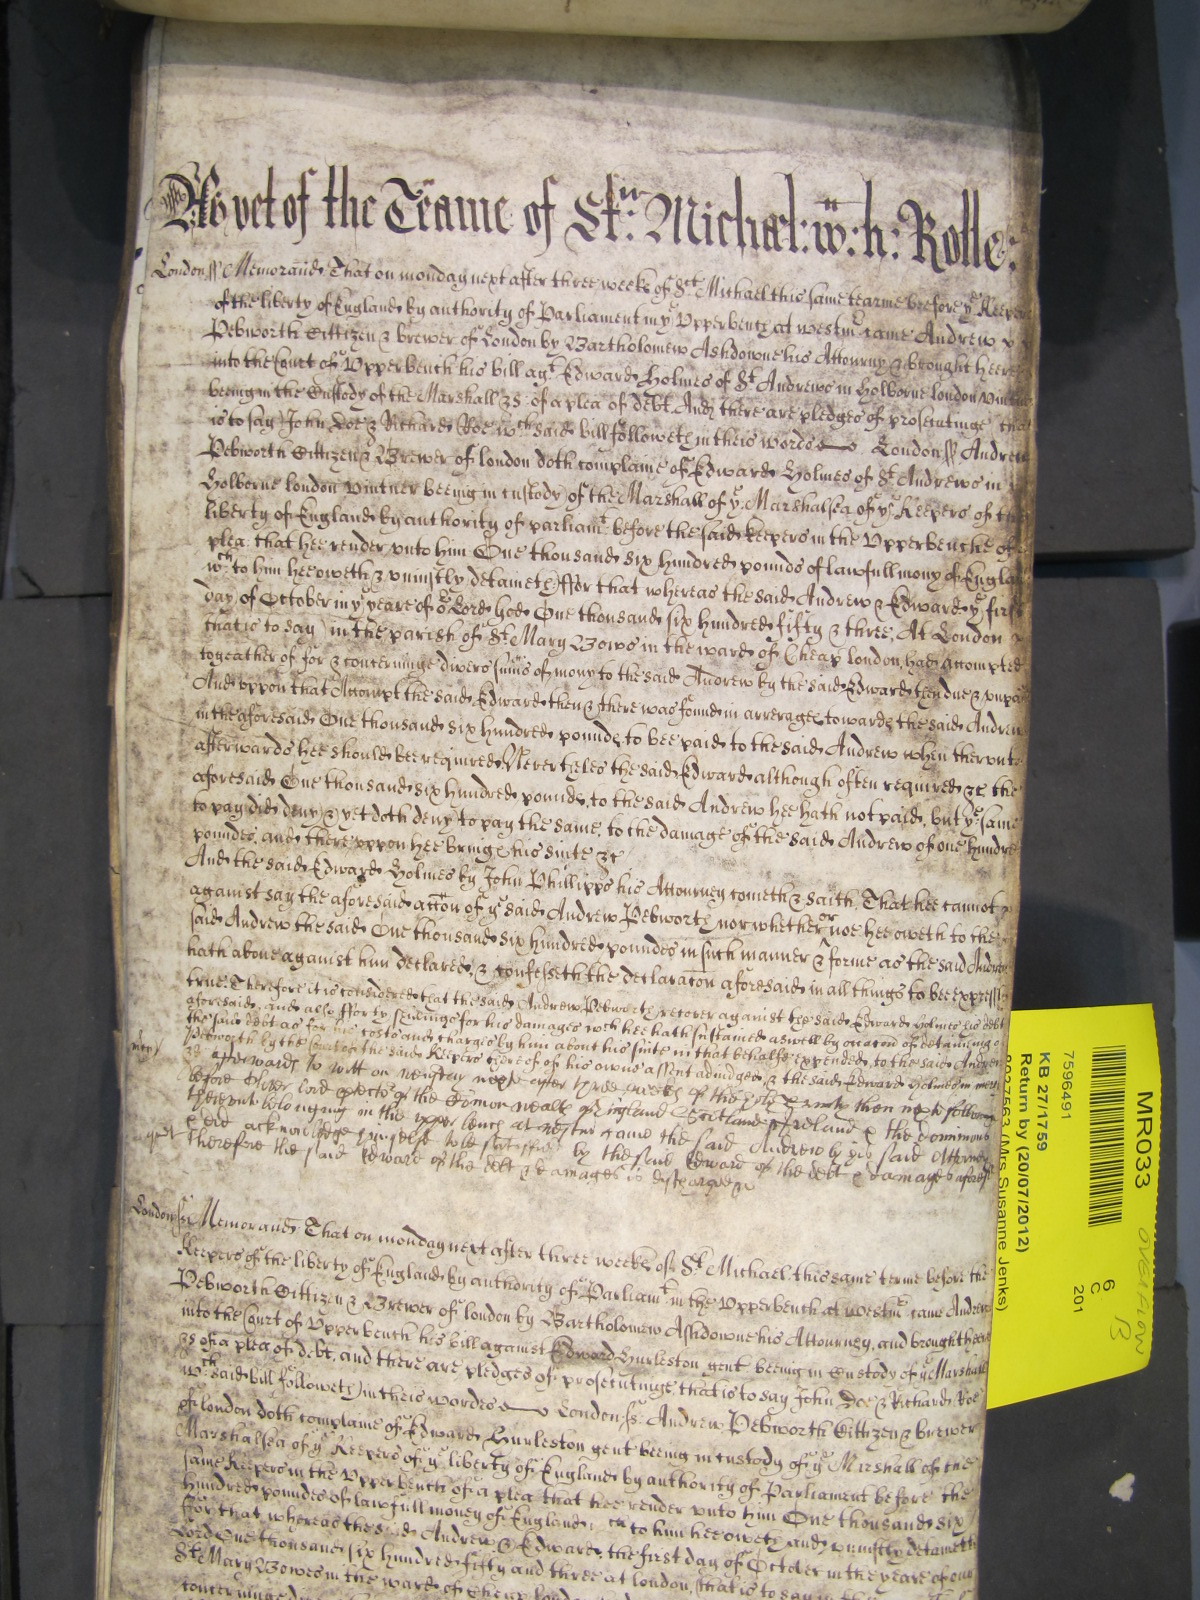 As yet of the Tearme of St: Michael: wth: h: Rolle:
London ss Memorand: That on monday next after three weekes of Sct Michael this same tearme beefore ye Keepers
of the liberty of England by authority of Parliament in ye Upperbench at westmr came Andrew
Pebworth Cittizen & brewer of London by Bartholomew Ashdowne his Attourny & brought heere
into the Court of Upperbench his bill agt Edward Holmes of St Andrews in Holborne london Vintner
beeing in the Custody of the Marshall &c: of a plea of debt. And there are pledges of prosecutinge that
is to say John Doe & Richard Roe wch said bill followeth in theis words London ss Andrew
Pebworth Cittizen & Brewer of london doth complaine of Edward Holmes of St Andrews in
Holborne london Vintner beeing in custody of the Marshall of ye Marshalsea of ye Keepers of the
liberty of England by authority of parliamt before the said keepers in the Upperbenche of a
plea that hee render unto him One thousand six hundred pounds of lawfull mony of England
wch to him hee oweth & uniustly detaineth ffor that whereas the said Andrew & Edward ye first
day of October in ye yeare of or Lord God One thousand six hundred fifty & three. At London
that is to say in the parish of St Mary Bows in the ward of Cheap london, had accompted
togeather of for & concerninge divers summs of mony to the said Andrew by the said Edward then due & unpaid
And uppon that Accompt the said Edward then & there was found in arrerages towards the said Andrew
in the aforesaid One thousand six hundred pounds to bee paid to the said Andrew when therunto
afterwards hee should bee required. Neverthelesse the said Edward although often required &c the
aforesaid One thousand six hundred pounds, to the said Andrew hee hath not paid, but ye same
to pay did deny & yet doth deny to pay the same, to the damage of the said Andrew of one hundred
poundes, and there uppon hee bringes his suite &c
And the said Edward Holmes by John Phillipps his Attourney cometh & saith, That hee cannot
against say the aforesaid accon of ye said Andrew Pebworth nor whether or noe hee oweth to the
said Andrew the said One thousand six hundred poundes in such manner & forme as the said Andrew
hath above against him declared, & confesseth the declaracon aforesaid in all things to bee expressly
true. Therefore it is considered that the said Andrew Pebworth recover against the said Edward Holmes his debt
aforesaid, and also fforty shillings for his damages wch hee hath sustained aswell by occacon of detaining of
the said debt as for his costs and charges by him about his suite in that behalfe expended, to the said Andrew
Pebworth by the Court of the said Keepers thereof of his owne assent adiudged, & the said Edward Holmes in mercy
mercy
&c afterwards to witt on next after three weekes of the holy trinity then next following
before Oliver lord protector of the Commonwealth of England Scotland & Ireland & the dominions
thereunto belonging in the upper bench at westmr came the said Andrew by his said Attorney
& did acknowledge himselfe to be satisfied by the said Edward of the debt & damages aforesd
Therefore the said Edward of the debt & damages is discharged &c
London ss Memorand: That on monday next after three weekes of St Michael this same terme before the
Keepers of the liberty of England by authority of Parliamt in the Upperbench at westmr came Andrew
Pebworth Cittizen & Brewer of london by Bartholomew Ashdowne his Attourney, and brought heere
into the Court of Upperbench his bill against Edward Hurleston gent beeing in Custody of ye Marshall
&c of a plea of debt. and there are pledges of prosecutinge, that is to say John Doe & Richard Roe
wch said bill followeth in theis wordes London ss: Andrew Pebworth Cittizen & brewer
of london doth complaine of Edward Hurleston gent beeing in custody of ye Marshall of the
Marshalsea of ye Keepers of ye liberty of England by authority of Parliament before the
same Keepers in the Upperbench of a plea that hee render unto him One thousand six
hundred poundes of lawfull money of England, wch to him hee oweth and uniustly detaineth
ffor that whereas the said Andrew & Edward, the first day of October in the yeare of our
Lord One thousand six hundred fifty and three at london, that is to say in the
St Mary Bowes in the ward of Cheap london
concerninge
MR033
overflow
B
6
C
201
7596491
KB 27/1759
Return by (20/07/2012)
(Mrs Susanne Jenks)